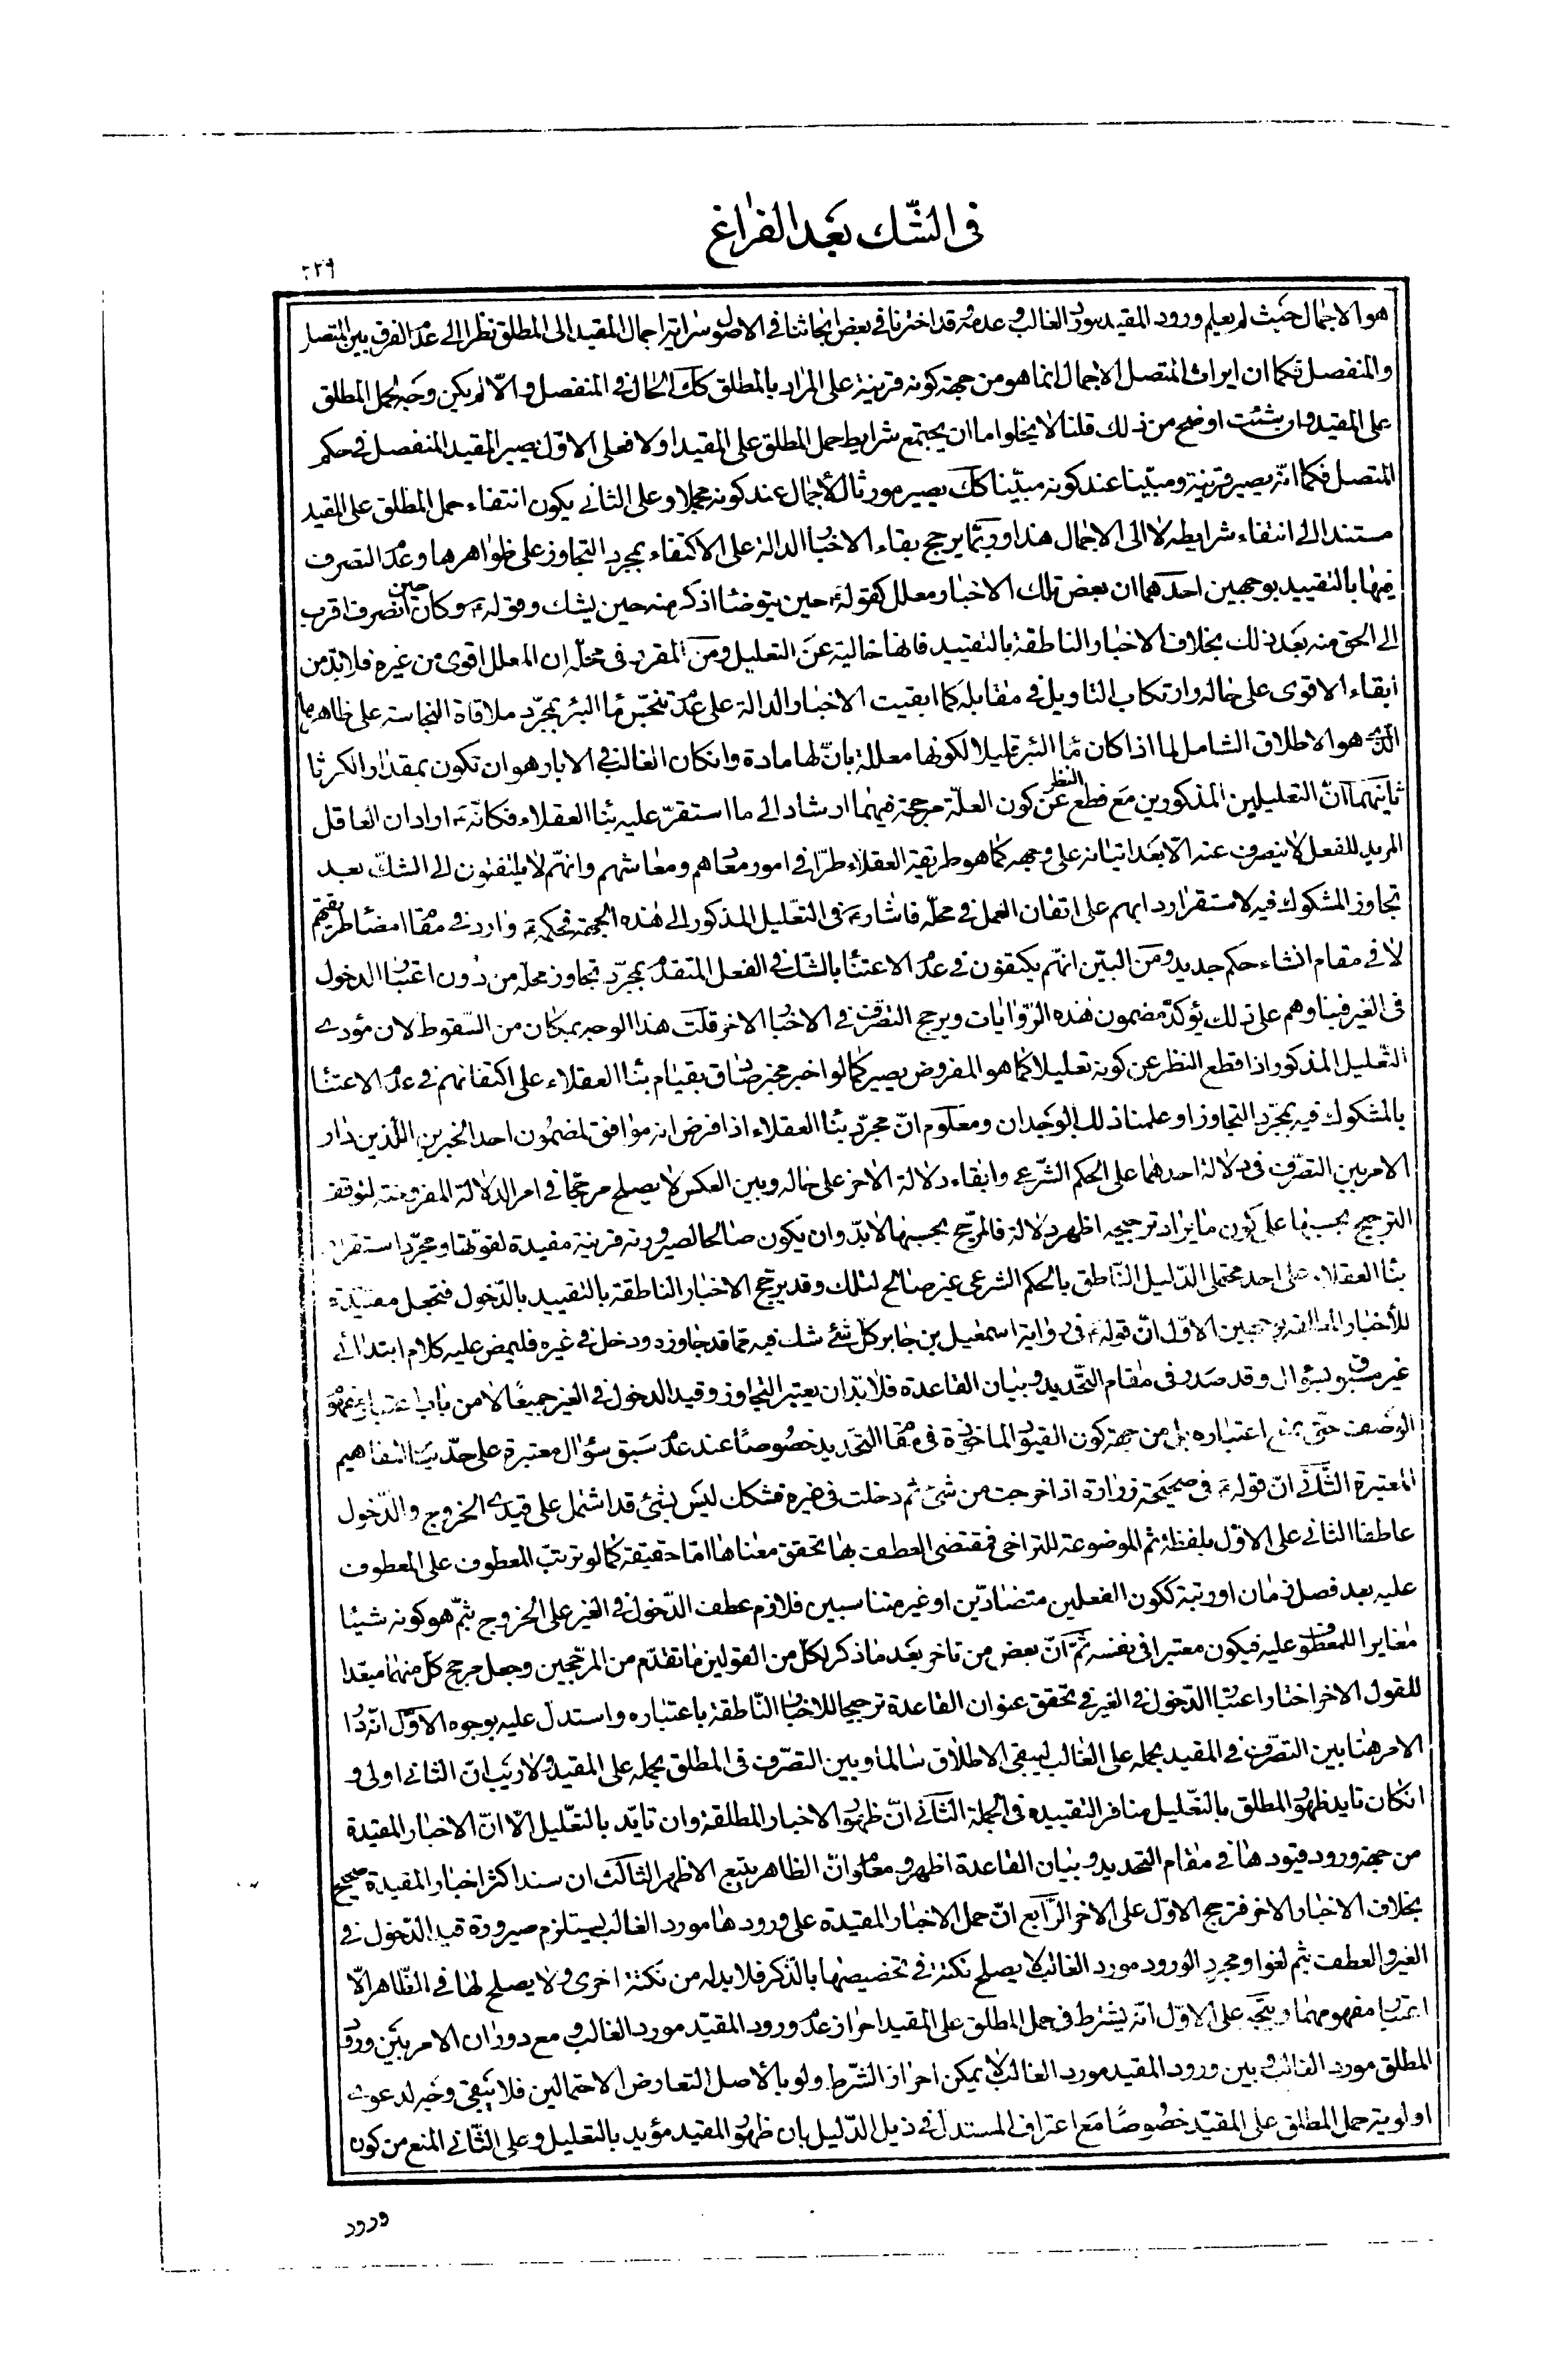 في الشّك بَعد الفراغ
٢٢٩
هو الاجمال حَيث لم يعلم ورود المقيد مورد الغالب وعدمه وقد اخترنا في بعض ابحاثنا في الاصول سراية اجمال المقيد الى المطلق نظرا الى عدم الفرق بين المتصل
والمنفصل فكما ان ايراث المتصل الاجمال انما هو من جهة كونه قرينة على المراد بالمطلق كك الحال في المنفصل والّا لم يكن وجه لحمل المطلق
على المقيد وان شئت اوضح من ذلك قلنا لا يخلوا ما ان يجتمع شرايط حمل المطلق على المقيد اولا فعلى الاوّل يصير المقيد المنفصل في حكم
المتصل فكما انّه يصير قرينة ومبيّنا عند كونه مبيّنا كك يصير مورثا لاجمال عند كونه مجملا وعلى الثاني يكون انتفاء حمل المطلق على المقيد
مستندا الى انتفاء شرايطه لا الى الاجمال هذا وربّما يرجح بقاء الاخبار الدالة على الاكتفاء بمجرد التجاوز على ظواهرها وعدم التصرف
فيها بالتقييد بوجهين احدهما ان بعض تلك الاخبار معلل كقوله ع حين يتوضا اذكر منه حين يشك وقوله ع وكان حين انصرف اقرب
الى الحق منه بَعد ذلك بخلاف الاخبار الناطقة بالتقييد فانها خالية عن التعليل ومن المقرر في محلّه ان المعلل اقوى من غيره فلا بدّ من
ابقاء الاقوى على حاله وارتكاب التاويل في مقابله كما ابقيت الاخبار الدالة على عدم تنجّس ماء البئر بمجرّد ملاقاة النجاسة على ظاهرها
الّذي هو الاطلاق الشامل لما اذا كان ماء البئر قليلا لكونها معللة بانّ لها مادة وانكان الغالب في الابار هو ان تكون بمقدار الكر ثا
ثانيهما انّ التعليلين المذكورين مع قطع النظر عن كون العلّة مرجحة فيهما ارشاد الى ما استقرّ عليه بناء العقلاء فكانّه ع اراد ان العاقل
المريد للفعل لا ينصرف عنه الّا بعد اتيانه على وجهه كما هو طريقة العقلاء طرّا في امور معادهم ومعاشهم وانهم لا يلتفتون الى الشكّ بعد
تجاوز المشكوك فيه لاستقرار دابهم على اتقان العمل في محلّه فاشار ع في التعليل المذكور الى هذه الجهة فحكمه ع وارد في مقام امضاء طريقتهم
لا في مقام انشاء حكم جديد ومن البيّن انهم يكتفون في عدم الاعتناء بالشك في الفعل المتقدم بمجرّد تجاوز محلّه من دون اعتبار الدخول
في الغير فبناؤهم على ذلك يؤكدّ مضمون هذه الرّوايات ويرجح التصرّف في الاخبار الاخر قلت هذا الوجه بمكان من السّقوط لان مؤدى
التّعليل المذكور اذا قطع النظر عن كونه تعليلا كما هو المفروض يصير كما لو اخبر مخبر صادق بقيام بناء العقلاء على اكتفائهم في عدم الاعتناء
بالمشكوك فيه بمجرّد التجاوز او علمنا ذلك بالوجدان ومعلوم انّ مجرّد بناء العقلاء اذا فرض انه موافق لمضمون احد الخبرين اللّذين دار
الامر بين التصرّف في دلالة احدهما على الحكم الشّرعي وابقاء دلالة الاخر على حاله وبين العكس لا يصلح مرجّحا في امر الدلالة المفروضة لتوقف
الترجيح بحسبها على كون ما يراد ترجيحه اظهر دلالة فالمرجّح بحسبها لا بدّ وان يكون صالحا لصيرورته قرينة مفيدة لقوّتها ومجرّد استقرار
بناء العقلاء على احد محتملى الدّليل النّاطق بالحكم الشرعي غير صالح لذلك وقد يرجّح الاخبار الناطقة بالتقييد بالدّخول فتجعل مقيّدة
للأخبار المطلقة بوجهين الاوّل انّ قوله ع في رواية اسمعيل بن جابر كلّ شئ شك فيه ممّا قد جاوزه ودخل في غيره فليمض عليه كلام ابتدائي
غير مسبوق بسؤال وقد صدر في مقام التّحديد وبيان القاعدة فلا بدّ ان يعتبر التجاوز وقيد الدخول في الغير جميعًا لا من باب اعتبار مفهوم
الوصف حتّى يمنع اعتباره بل من جهة كون القيود الماخوذة في مقام التحديد خصوصًا عند عدم سبق سؤال معتبرة على حدّ سائر المفاهيم
المعتبرة الثّاني انّ قوله ع في صحيحة زرارة اذا خرجت من شئ ثم دخلت في غيره فشكك ليس بشئ قد اشتمل على قيدى الخروج والدّخول
عاطفا الثاني على الاوّل بلفظة ثم الموضوعة للتراخي فمقتضى العطف بها تحقق معناها امّا حقيقة كما لو ترتّب المعطوف على المعطوف
عليه بعد فصل زمان او رتبة ككون الفعلين متضادّين او غير متناسبين فلازم عطف الدّخول في الغير على الخروج بثمّ هو كونه شيئا
مغايرا للمعطوف عليه فيكون معتبرا في نفسه ثمّ انّ بعض من تاخر بعد ما ذكر لكلّ من القولين ما تقدّم من المرجّحين وجعل مرجح كلّ منهما مبعّدا
للقول الاخر اختار اعتبار الدّخول في الغير في تحقق عنوان القاعدة ترجيحا للاخبار النّاطقة باعتباره واستدلّ عليه بوجوه الاوّل انّه دا
الامر هنا بين التصرّف في المقيد بحمله على الغالب ليبقى الاطلاق سالما وبين التصرّف في المطلق بحمله على المقيد ولا ريب انّ الثاني اولى و
انكان تايد ظهور المطلق بالتعّليل منافر التقييده في الجملة الثّاني انّ ظهور الاخبار المطلقة وان تايّد بالتعّليل الّا انّ الاخبار المقيدة
من جهة ورود قيودها في مقام التحديد وبيان القاعدة اظهر ومعلوم انّ الظاهر يتبع الاظهر الثالث ان سند اكثر اخبار المقيدة صحيح
بخلاف الاخبار الاخر فترجح الاوّل على الاخر الرّابع انّ حمل الاخبار المقيدة على ورودها مورد الغالب يستلزم صيرورة قيد الدّخول في
الغير والعطف بثم لغوا ومجرد الورود مورد الغالب لا يصلح نكتة في تخصيصها بالذّكر فلا بدله من نكتة اخرى ولا يصلح لها في الظّاهر الّا
اعتبار مفهومهما ويتّجه على الاوّل انّه يشترط في حمل المطلق على المقيد احراز عدم ورود المقيّد مورد الغالب ومع دوران الامر بين ورود
المطلق مورد الغالب وبين ورود المقيد مورد الغالب لا يمكن احراز الشّرط ولو بالأصل لتعارض الاحتمالين فلا يبقى وجه لدعوى
اولوية حمل المطلق على المقيّد خصوصًا مع اعتراف المستدلّ في ذيل الدّليل بان ظهور المقيد مؤيد بالتعليل وعلى الثّاني المنع من كون
ورود